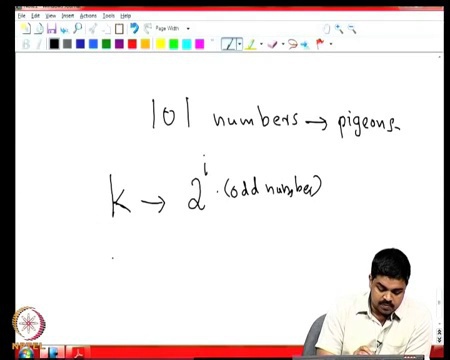 File Edit View Insert Actions Tools Help
Page Width
B I
101 numbers → pigeons.
K → 2^i . (odd number)
NPTEL